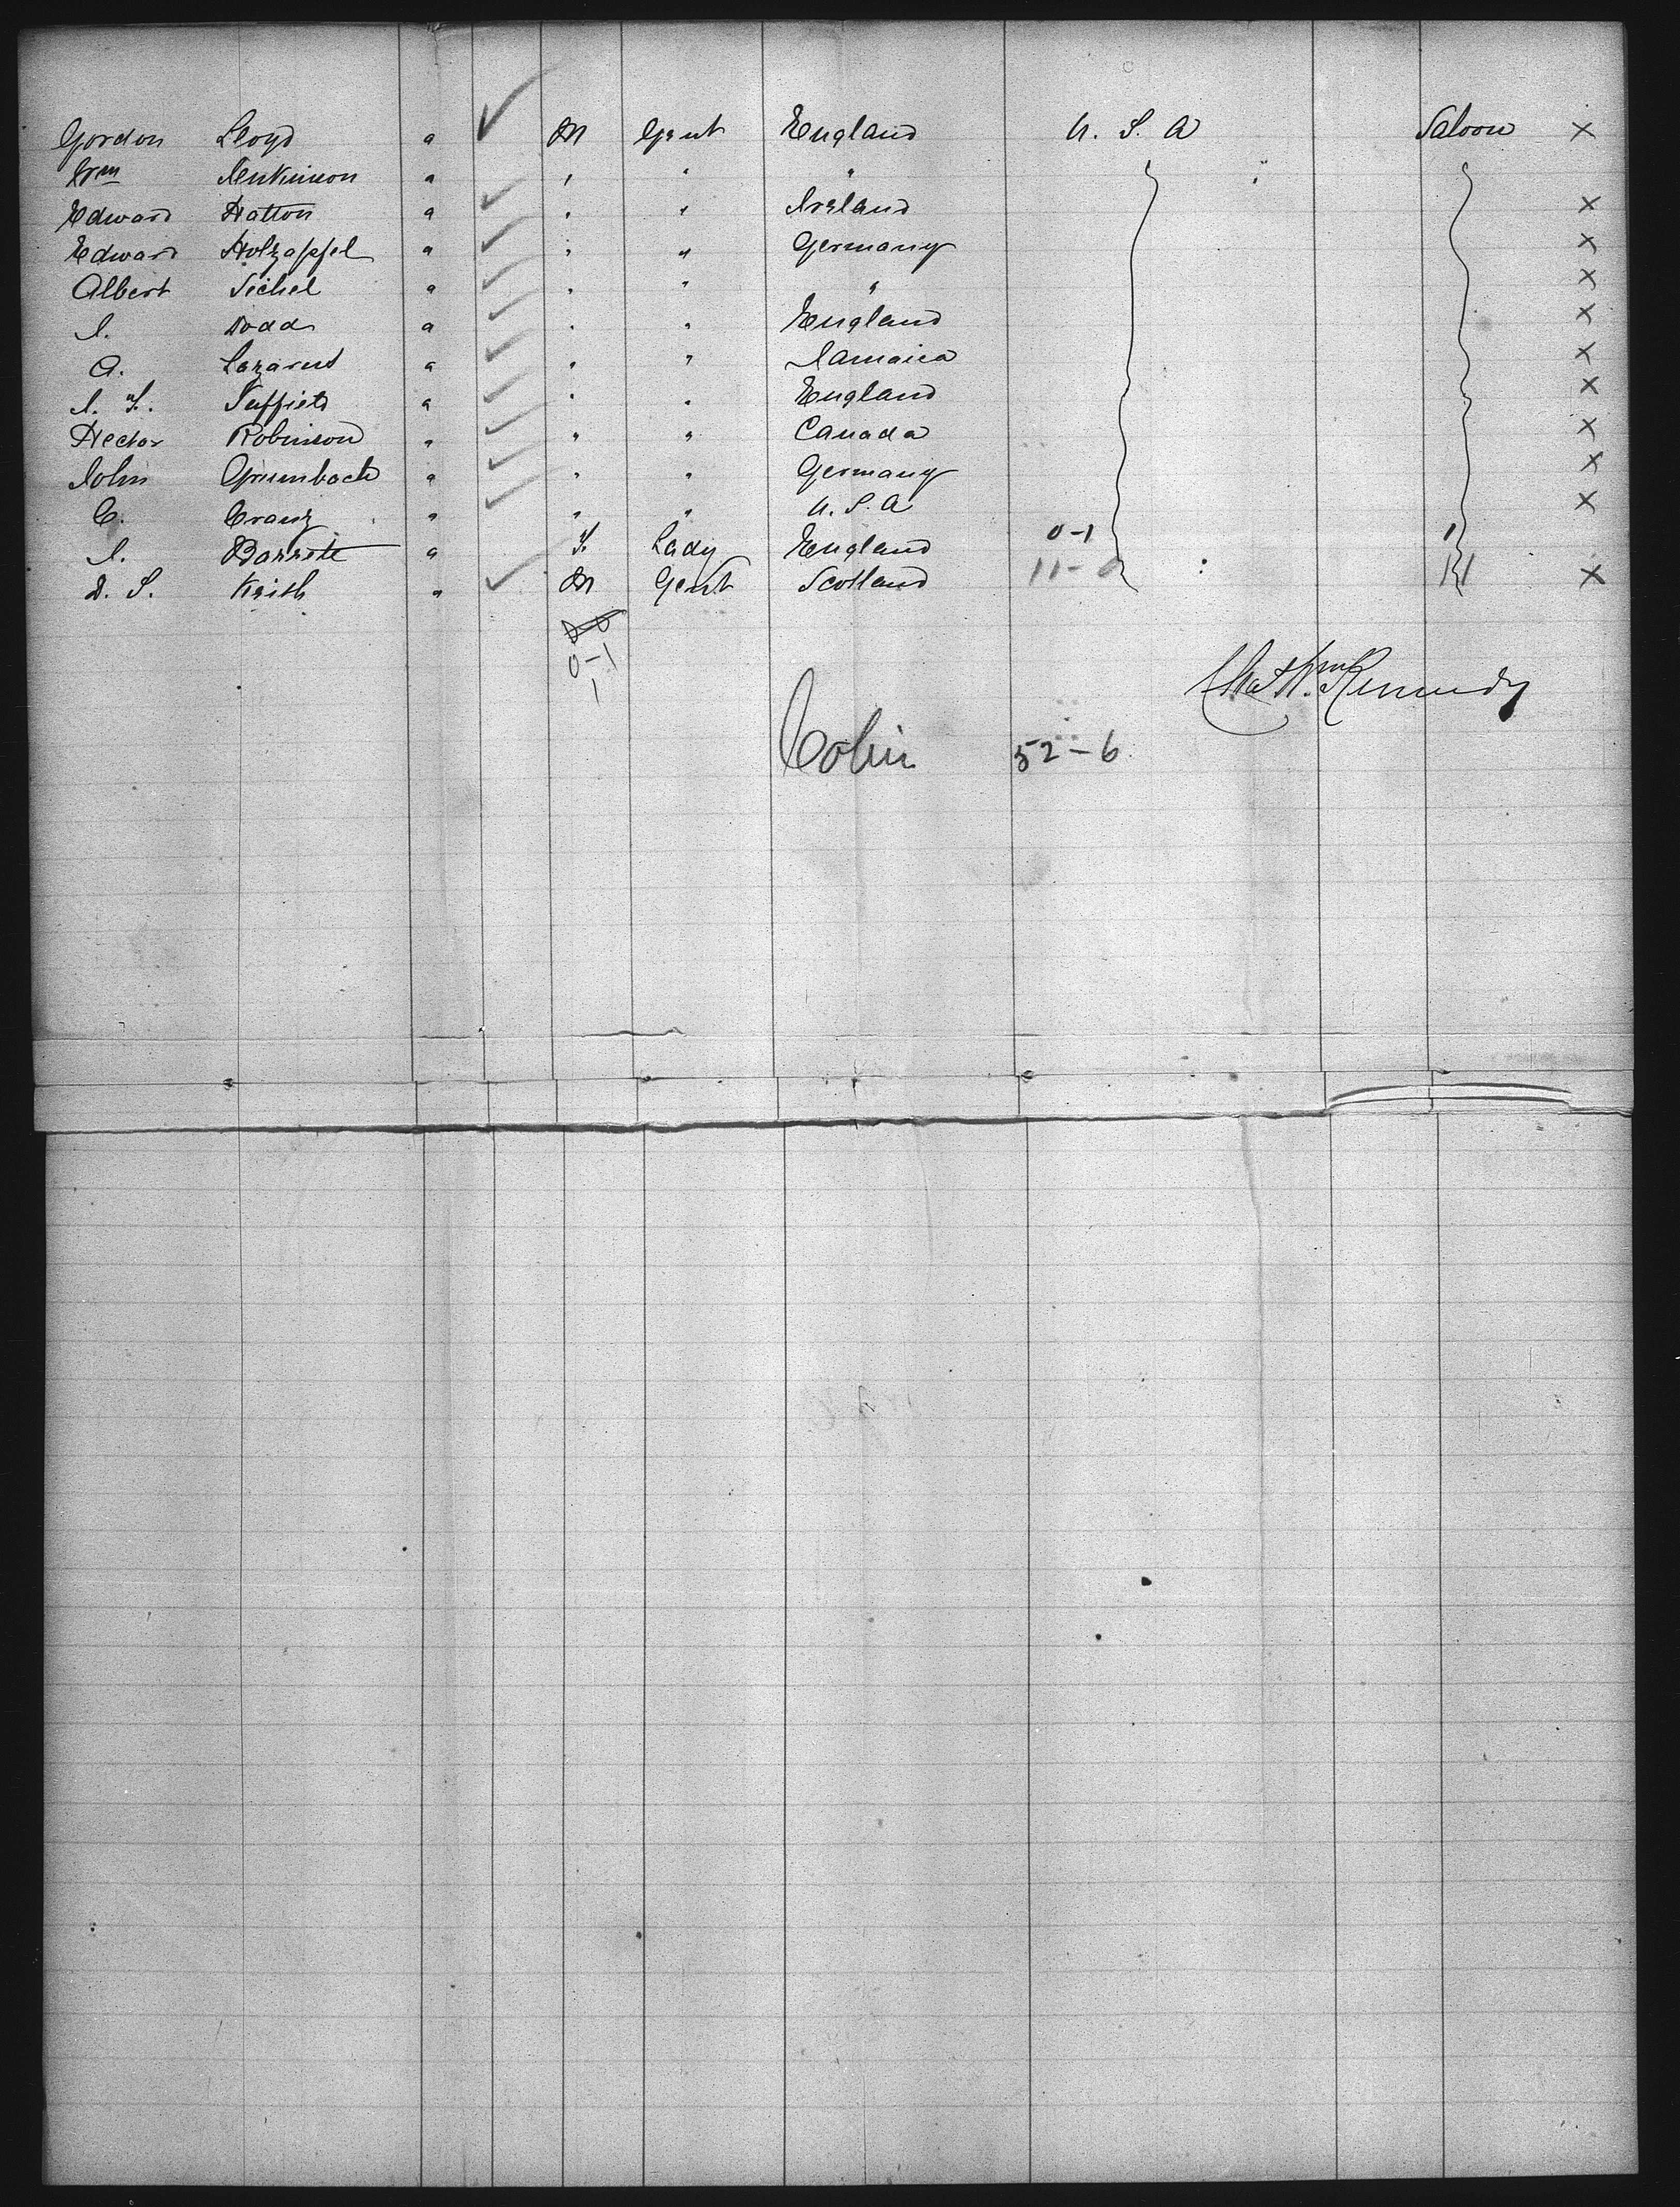 Gordon Lloyd a ✓ M Gent England U. S. A Saloon ×
Wm Jenkinson a " " "
Edward Hatton a ✓ " " Ireland ×
Edward Holzapfel a ✓ " " Germany ×
Albert Sichel a ✓ " " " ×
J. Dodd a ✓ " " England ×
A. Lazarus a ✓ " " Jamaica ×
J. F. Suffield a ✓ " " England ×
Hector Robinson " ✓ " " Canada ×
John Grumbach a ✓ " " Germany ×
C. Cranz " ✓ " " U. S. A ×
J. Barrett a F. Lady England 0-1 1
D. S. Keith " ✓ M Gent Scotland 11-0 ×
0-1
1
Kennedy
Cabin 52-6